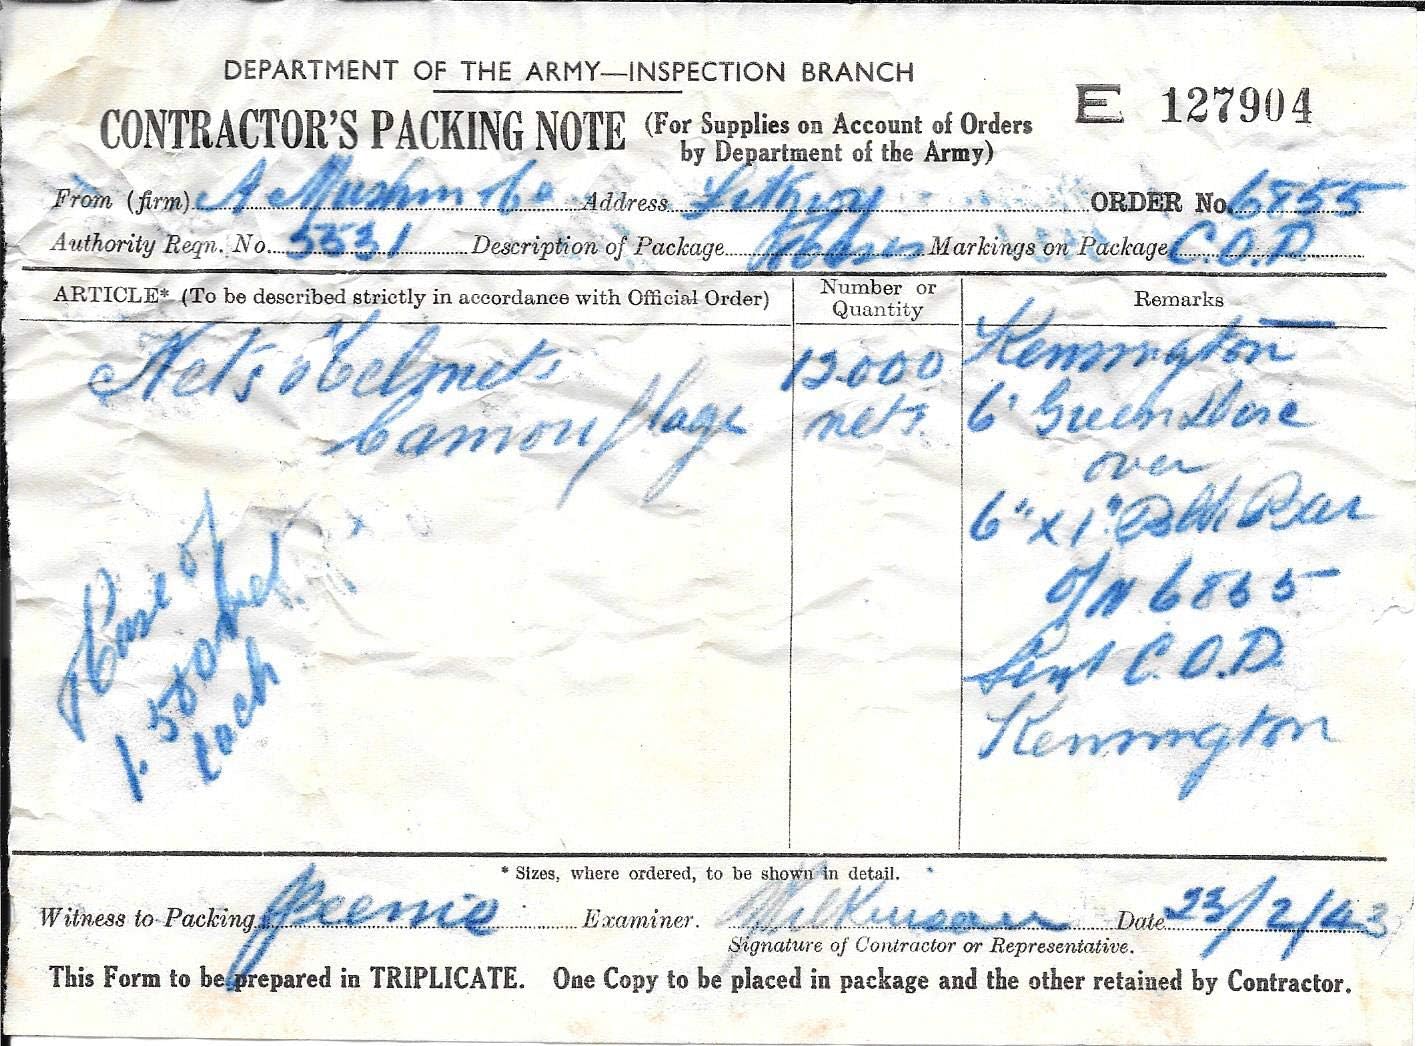 DEPARTMENT OF THE ARMY—INSPECTION BRANCH
E 127904
CONTRACTOR'S PACKING NOTE (For Supplies on Account of Orders
by Department of the Army)
From (firm) A Address ORDER No. 6855
Authority Reqn. No. 5531 Description of Package Markings on Package C.O.D
ARTICLE* (To be described strictly in accordance with Official Order) Number or Quantity Remarks
Nets Helmets 12.000 Kennington
Camouflage nets. 6' Green
over
6" x 1" Bar
o/n 6855
Sent C.O.D.
Kennington
Case of
1.500 net
each
* Sizes, where ordered, to be shown in detail.
Witness to Packing Examiner. Wilkinson Date 23/2/43
Signature of Contractor or Representative.
This Form to be prepared in TRIPLICATE. One Copy to be placed in package and the other retained by Contractor.